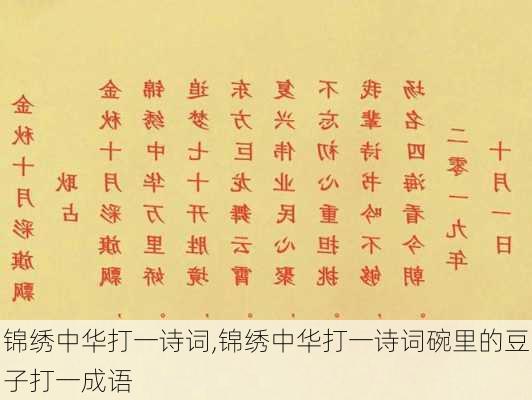 金秋十月彩旗飘
耿占
金秋十月彩旗飘，
锦绣中华万里娇。
追梦七十开胜境，
东方巨龙舞云霄。
复兴伟业民心聚，
不忘初心重担挑。
我辈诗书吟不够，
扬名四海看今朝。
二零一九年
十月一日
锦绣中华打一诗词,锦绣中华打一诗词碗里的豆
子打一成语